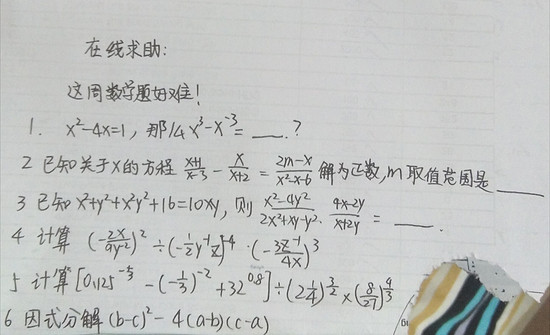 在线求助:
这周数学题好难!
1. x²-4x=1, 那 x³-x⁻³= ___.?
2 已知关于x的方程 (x+1)/(x-3) - x/(x+2) = (2m-x)/(x²-x-6) 解为正数,m取值范围是 ___
3 已知x²+y²+x²y²+16=10xy, 则 (x²-4y²)/(2x²+xy-y²) · (4x-2y)/(x+2y) = ___.
4 计算 (-2x/9y⁻²)² ÷ (-1/2 y⁻¹z)⁻⁴ · (-3z⁻¹/4x)³
5 计算 [0.125^(-1/3) - (-1/3)⁻² + 32^0.8] ÷ (2 1/4)^(3/2) × (8/27)^(4/3)
6 因式分解 (b-c)² - 4(a-b)(c-a)